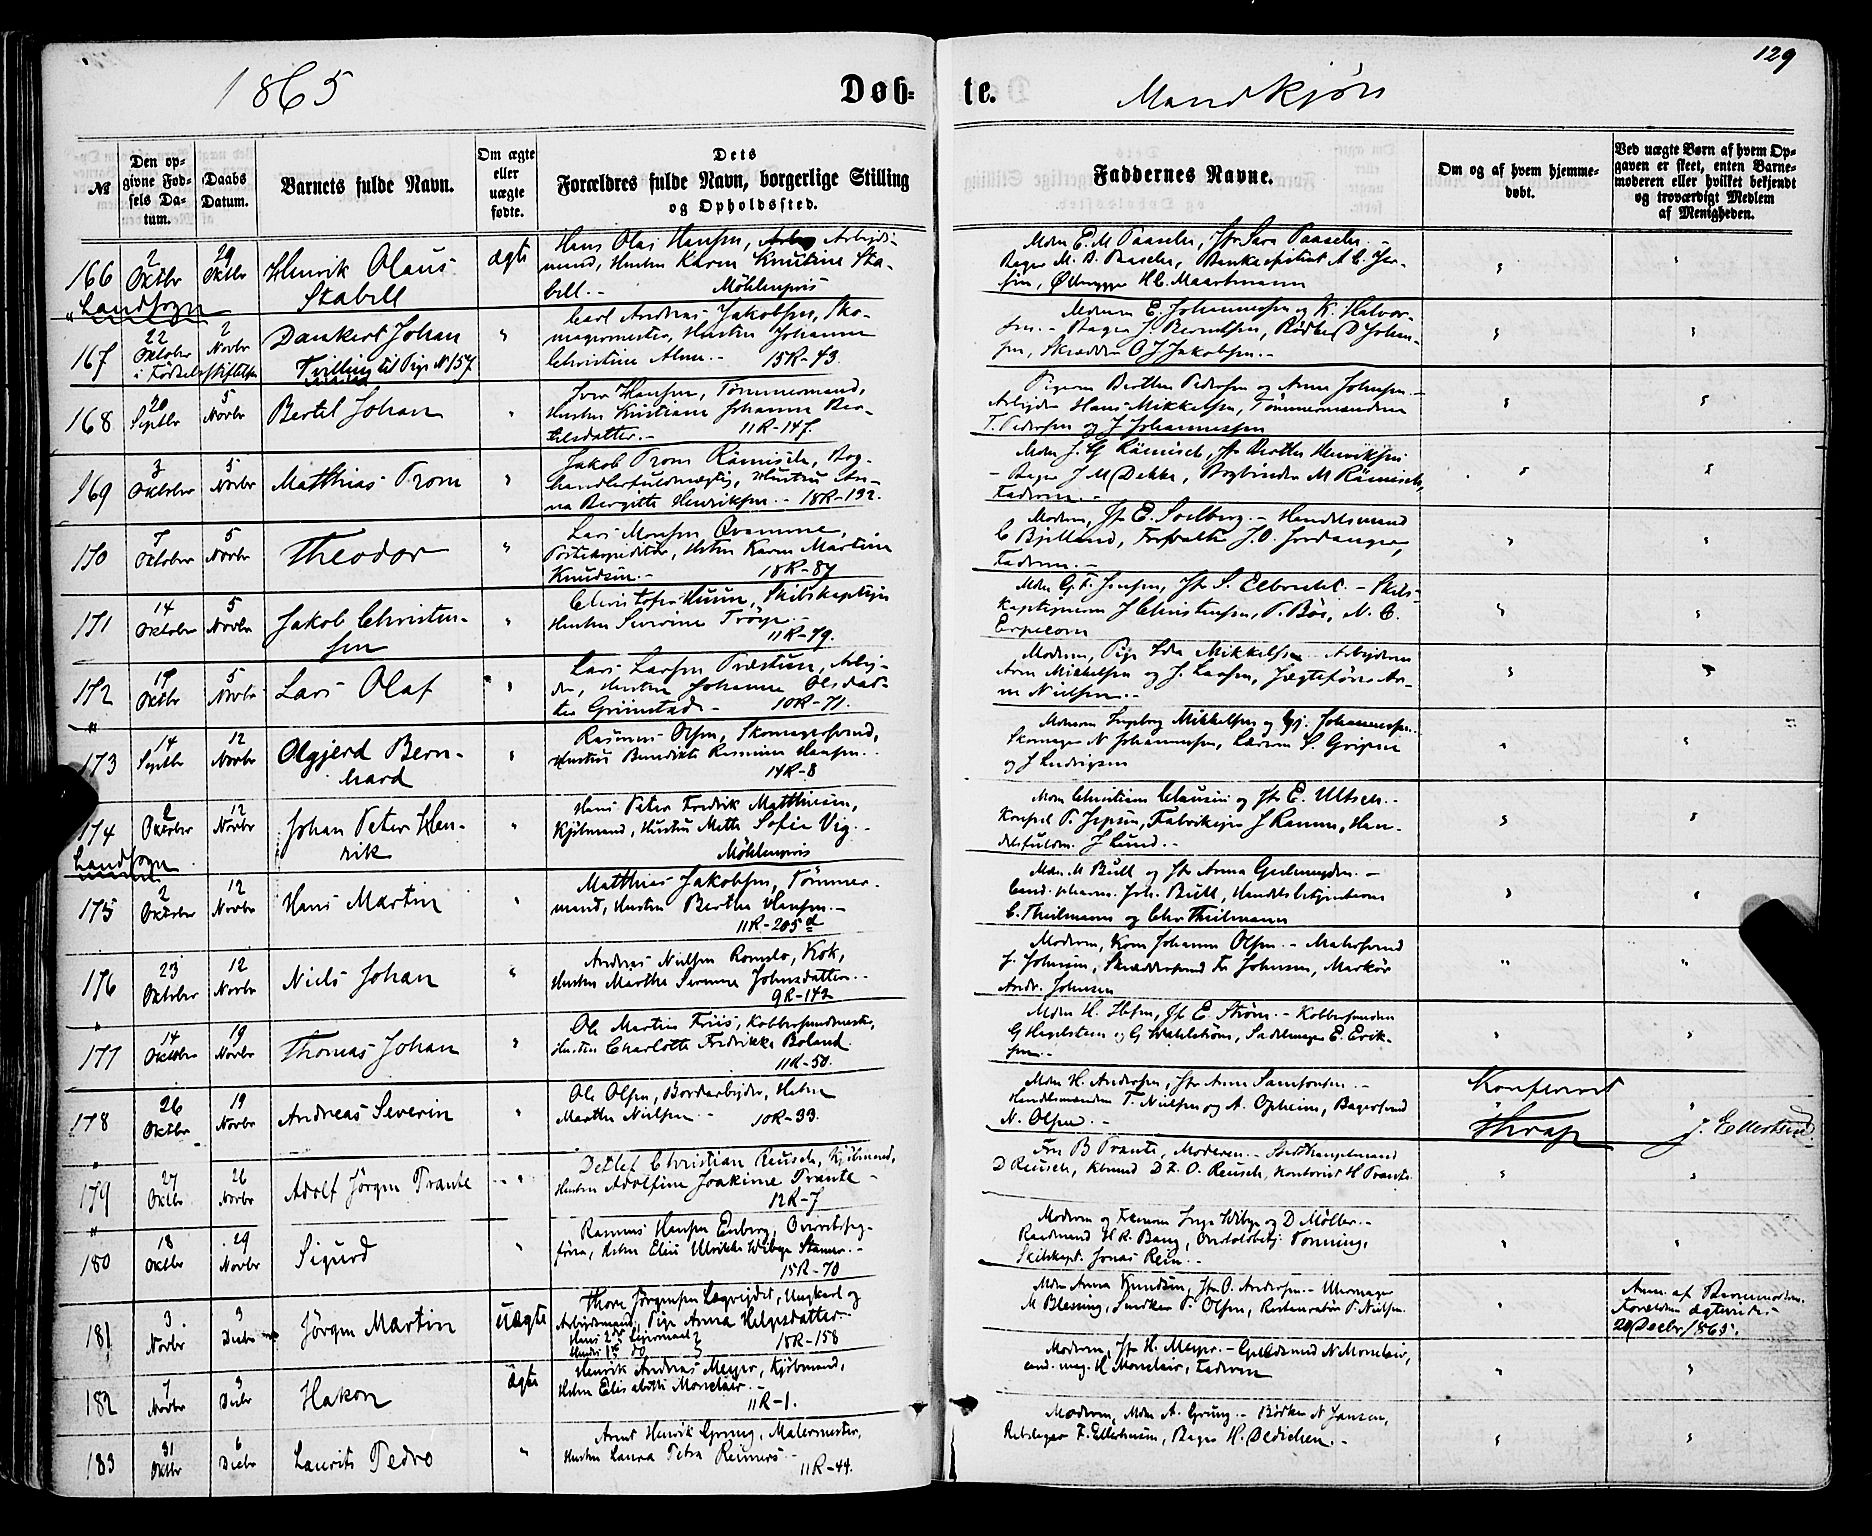 129
1865
Døb-
te.
Mandkjøn
№
Den op-
givne Fød-
sels Da-
tum.
Daabs
Datum.
Barnets fulde Navn.
Om ægte
eller
uægte
fødte.
Dets
Forældres fulde Navn, borgerlige Stilling
og Opholdssted.
Faddernes Navne.
Om og af hvem hjemme-
døbt.
Ved uægte Børn af hvem Op-
gaven er skeet, enten Barne-
moderen eller hvilket bekjendt
og troværdigt Medlem
af Menigheden.
166
2
Oktbr
29
Oktbr
Henrik Olaus
Stabell
ægte
Hans Olai Hansen, Arbeids-
mand, Hustru Karen Knutine Sta-
bell.-
Möhlenpris
Mdm E. M Paasche, Jfr Sara Paasche.-
Bager M. B. Paasche
H C. Maartmann
Landsogn
167
22
Oktober
2
Novbr
i Fødselsstiftelsen
Dankert Johan
Tvilling til Pige N 157
"
Carl Andreas Jakobsen, Sko-
magermester, Hustru Johanne
Christine Alme.-
15R-43.
Madmm E. Johannessen og K. Halvor-
sen.- Bager J. Berntsen, Bødker D Johan-
sen, Skrædder O J Jakobsen.-
168
20
Septbr
5
Novbr
Bertel Johan
"
Iver Hansen, Tömmermand,
Hustru Kristiane Johanne Ber-
telsdatter.-
11R-147.
Pigerne Berthe Pedersen og Anne Johnsen.-
Arbeider Hans Mikkelsen, Tømmermændene
T. Pedersen og J Johannessen
169
3
Oktober
5
Novbr
Matthias From
"
Jakob From Rämisch, Bog-
handlerfuldmægtig, Hustru An-
na Bergitte Henriksen.- 18R-192.
Mdm J. G Rämisch, Jfr Berthe Henriksen
- Bager J M Dekke, Bogbinder M Rämisch,
Faderen.-
170
7
Oktober
5
Novbr
Theodor
"
Lars Monsen Qvamme,
Postexpeditör, Hstru Karen Martine
Knudsen.-
18R-87
Moderen, Jfr E. Solberg.- Handelsmand
C Bjelland, Forvalter J. O. Jordanger,
Faderen.-
171
14
Oktober
5
Novbr
Jakob Christen-
sen
"
Christofer Huun, Skibskaptejn
Hustru Severine Tröye.-
11R-79.
Mdm G. T. Jensen, Jfr S. Elbrecht.- Skibs-
kaptejnerne J Christensen, P. Böe, N. C.
Erpecom
172
19
Oktbr
5
Novbr
Lars Olaf
"
Lars Larsen Præstun, Arbej-
der, Hustru Johanne Olsdat-
ter Grimstad.-
10R-71.
Moderen, Pige Ida Mikkelsen. Arbejderne
Arne Mikkelsen og J. Larsen, Jægtefører Ar-
ne Nielsen.-
173
14
Septbr
12
Novbr
Olgjerd Bern-
hard
"
Rasmus Olsen, Skomagersvend,
Hustru Benedikte Rasmine Hansen.-
14R-8
Madmm Ingeborg Mikkelsen og Gj. Johannessen.
Skomager N Johannessen, Lærer S. Gripne
og J Ludvigsen
174
9
Oktober
12
Novbr
Johan Peter Hen-
rik
"
Hans Peter Fredrik Matthiesen,
Kjöbmand, Hustru Mette Sofie Vig.-
Möhlenpris
Mdm Christiane Clausen og Jfr E. Ultsch.-
Konsul P. Jepsen, Fabrikejer J Ramm, Han-
delsfuldm. J Lund.-
Landsogn
175
2
Oktober
12
Novbr
Hans Martin
"
Matthias Jakobsen, Tömmer-
mand, Hustru Berthe Hansen.-
11R-205d
Mdm M Bull og Jfr Anna Gjelmuyden.-
Cand. pharm. Joh. Bull, Handelsbetjenterne
C. Theilmann og Chr Theilmann
176
23
Oktober
12
Novbr
Niels Johan
"
Andreas Nielsen Romslo, Kok,
Hustru Marthe Severine Johnsdatter.-
9R-142
Moderen, Kone Johanne Olsen.- Malersvend
J. Johnsen, Skræddersvend Fr Johnsen, Markör
Andr. Johnsen
177
14
Oktober
19
Novbr
Thomas Johan
"
Ole Martin Friis, Kobberslagermester,
Hustru Charlotte Fredrikke Boland.
11R-50.
Mdm H. Ibsen, Jfr E. Ström.- Kobbersmedene
G Hagelsteen og G Wahlström, Sadelmager E. Erik-
sen.-
178
26
Oktbr
19
Novbr
Andreas Severin
"
Ole Olsen, Bordarbejder, Hstru
Marthe Nielsen.-
10R-33.
Mdm H. Andersen, Jfr Anne Samsonsen.-
Handelsmændene T. Nielsen og A. Opheim, Bagersvend
N. Olsen.-
Konfereret
Thrap
J. Ellertsen
179
27
Oktbr
26
Novbr
Adolf Jörgen Trante
"
Detlef Christian Reusch, Kjöbmand,
Hustru Adolfine Joakime Trante.-
12R-7
Fru B Trante, Moderen.-
D Reusch, Kbmand D Z. O. Reusch, Kontorist H Trante
180
18
Oktbr
29
Novbr
Sigurd
"
Rasmus Hansen Enberg, Overretssag-
förer, Hstru Elise Ulrikke Wibye Stamer.-
15R-70
Moderen og Frøknerne Inge Wibye og D Møller.-
Raadmand H R. Bang, Tønning,
Skibskapt. Jonas Rein.-
181
3
Novbr
3
Decbr
Jörgen Martin
uægte
Thore Jörgensen Lægreidet, Ungkarl og
Arbejdsmand, Pige Anna Helgesdatter.-
Hans 2det Lejermaal
Hendes 1ste do
18R-158
Mdm Anna Knudsen, Jfr O. Andersen.- Uhrmager
M Blessing, Snedker P. Olsen, Restauratör P. Nielsen.
Anm. af Barnemoderen.
Forældrene ægteviede
29 Decbr 1865.
182
7
Novbr
3
Decbr
Hakon
ægte
Henrik Andreas Meyer, Kjöbmand,
Hstru Elisabeth Monclair.-
11R-1.
Moderen, Jfr H. Meyer.- Guldsmed N Monclair,
cand. mag. H. Monclair, Faderen
183
31
Oktbr
6
Decbr
Laurits Pedro
"
Arent Henrik Grung, Malermester,
Hustru Laura Petra Reimers.-
11R-44.
Moderen, Mdm A. Grung.- Bödker N Jansen,
Rebslager F. Ellertsen, Bager H. Didichen.-